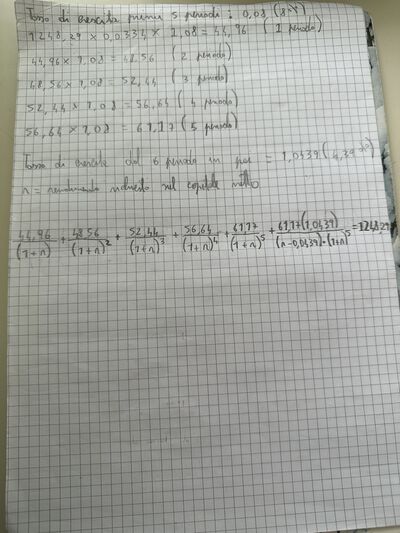 Tasso di crescita primi 5 periodi: 0,08 (8%)
1248,29 x 0,0334 x 1,08 = 44,96 (1 periodo)
44,96 x 1,08 = 48,56 (2 periodo)
48,56 x 1,08 = 52,44 (3 periodo)
52,44 x 1,08 = 56,64 (4 periodo)
56,64 x 1,08 = 61,17 (5 periodo)
Tasso di crescita dal 6 periodo in poi = 1,0439 (4,39%)
r = rendimento richiesto sul capitale
44,96/(1+r) + 48,56/(1+r)^2 + 52,44/(1+r)^3 + 56,64/(1+r)^4 + 61,17/(1+r)^5 + 61,17(1,0439)/(r-0,0439)*(1+r)^5 = 1248,29